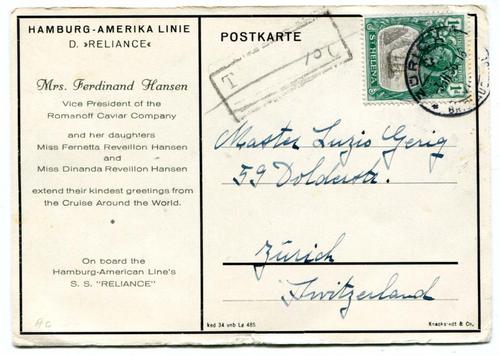 HAMBURG-AMERIKA LINIE
D. »RELIANCE«
Mrs. Ferdinand Hansen
Vice President of the
Romanoff Caviar Company
and her daughters
Miss Fernetta Reveillon Hansen
and
Miss Dinanda Reveillon Hansen
extend their kindest greetings from
the Cruise Around the World.
*
On board the
Hamburg-American Line's
S. S. "RELIANCE"
AC
POSTKARTE
T
ST HELENA
Master Luzio Gerig
59 Dolderstr.
Zürich
Switzerland
ked 34 vnb Lø 485
Knackstedt & Co.